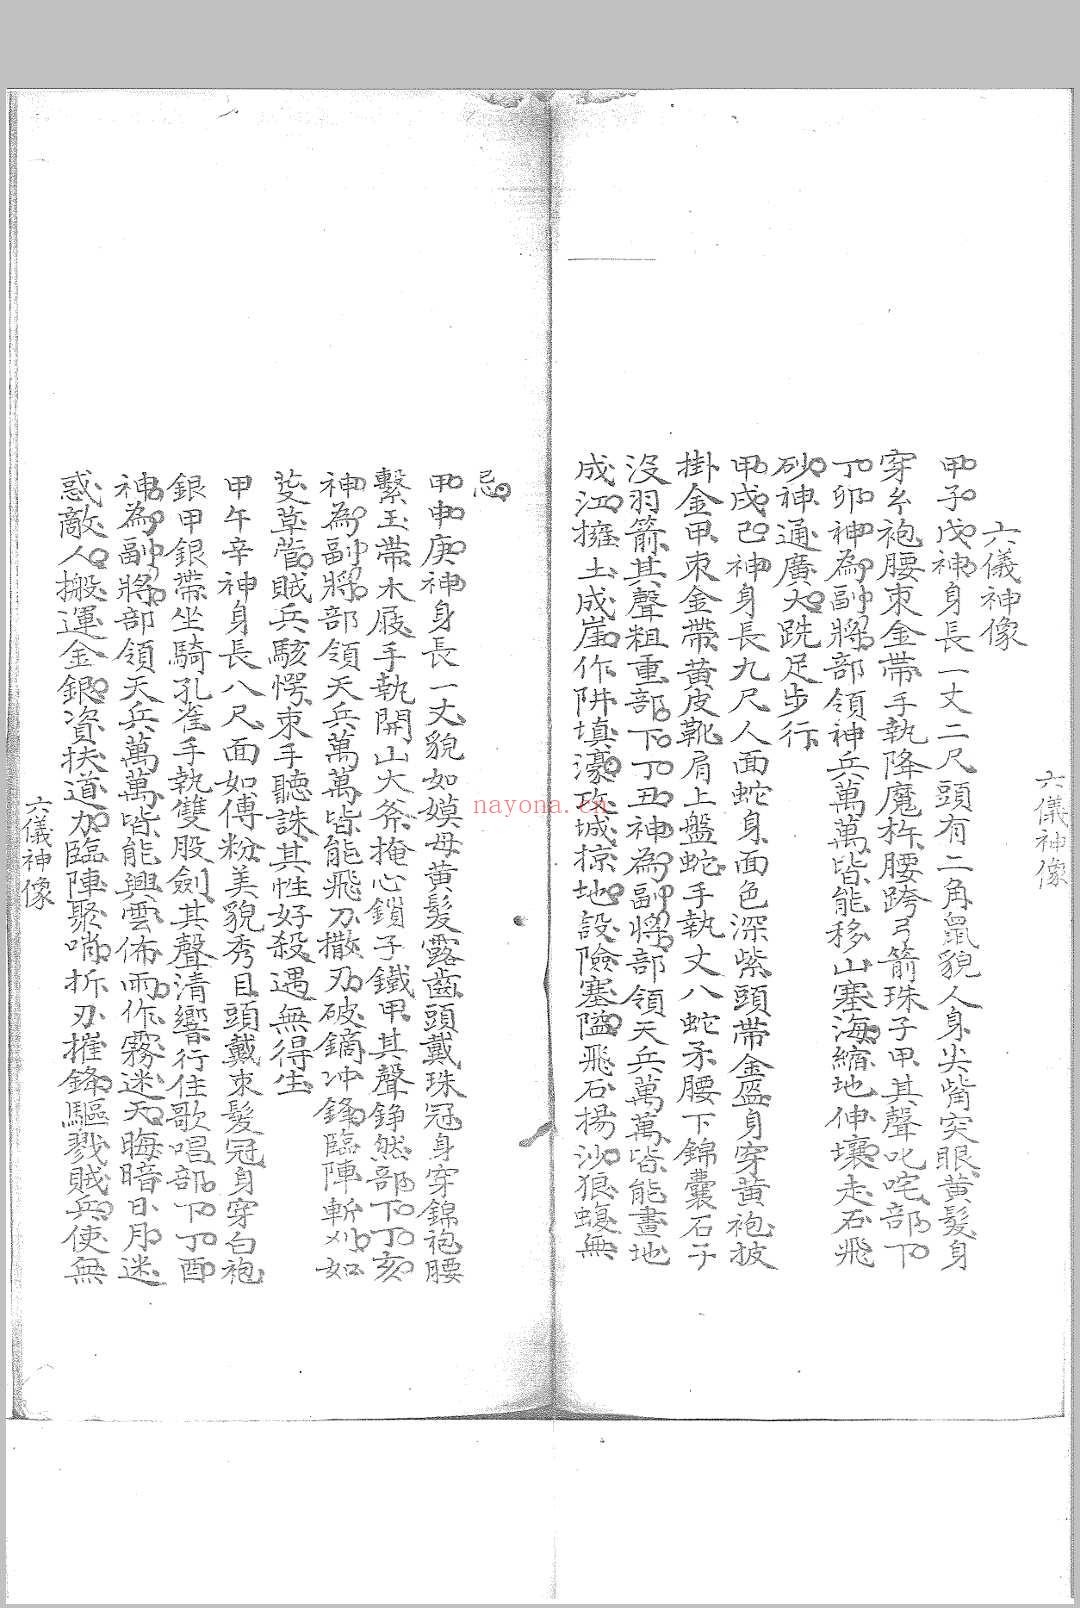 六儀神像
六儀神像
甲子戊神身長一丈二尺頭有二角鼠貌人身尖嘴突眼黃髮身
穿糸袍腰束金帶手執降魔杵腰跨弓箭珠子甲其聲叱咤部下
丁卯神為副將部領神兵萬萬皆能移山塞海縮地伸壤走石飛
砂神通廣大跣足步行
甲戌己神身長九尺人面蛇身面色深紫頭帶金盔身穿黃袍披
掛金甲束金帶黃皮靴肩上盤蛇手執丈八蛇矛腰下錦囊石子
沒羽箭其聲粗重部下丁丑神為副將部領天兵萬萬皆能畫地
成江擁土成崖作阱填濠攻城掠地設險塞隘飛石揚沙狠蝮無
忌
甲申庚神身長一丈貌如嫫母黃髮露齒頭戴珠冠身穿錦袍腰
繫玉帶木屐手執開山大斧掩心鎖子鐵甲其聲錚然部下丁亥
神為副將部領天兵萬萬皆能飛刀撒刃破鏑冲鋒臨陣斬刈如
芟草菅賊兵駭愕束手聽誅其性好殺遇無得生
甲午辛神身長八尺面如傅粉美貌秀目頭戴束髮冠身穿白袍
銀甲銀帶坐騎孔雀手執雙股劍其聲清響行住歌唱部下丁酉
神為副將部領天兵萬萬皆能興雲佈雨作霧迷天晦暗日月迷
惑敵人搬運金銀資扶道力臨陣聚哨折刃摧鋒驅戮賊兵使無
六儀神像
nayona.cn